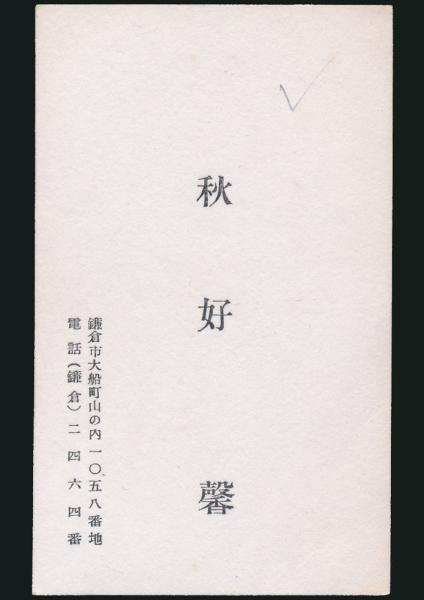 秋好馨
鎌倉市大船町山の内一〇五八番地
電話(鎌倉)二四六四番